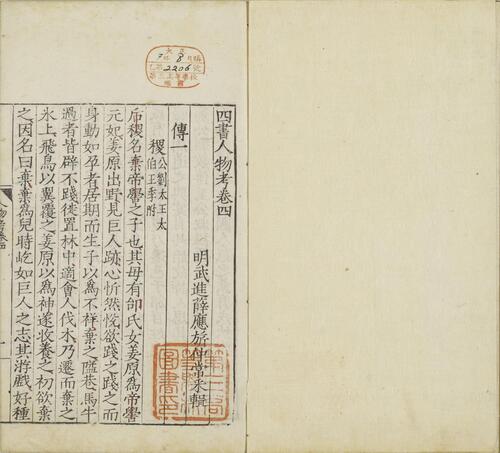 四書人物考卷四
明武進薛應旂仲常采輯
傳一
稷 公劉 太王 太
伯 王季附
后稷名棄帝嚳之子也其母有邰氏女姜原爲帝嚳
元妃姜原出野見巨人跡心忻然悅欲踐之踐之而
身動如孕者居期而生子以爲不祥棄之隘巷馬牛
過者皆辟不踐徙置林中適會人伐木乃遷而棄之
氷上飛鳥以翼覆之姜原以爲神遂收養之初欲棄
之因名曰棄棄爲兒時屹如巨人之志其游戲好種
2206